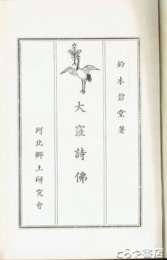 鈴木碧堂著
大窪詩佛
河北郷土研究會
とらや書店